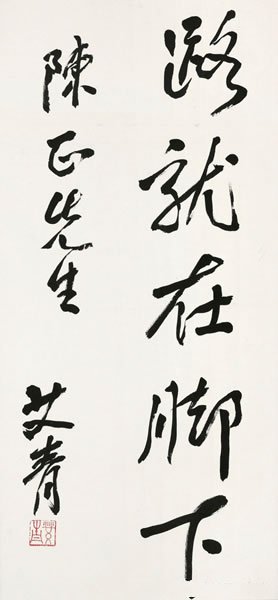 路就在脚下
陳正先生
艾青